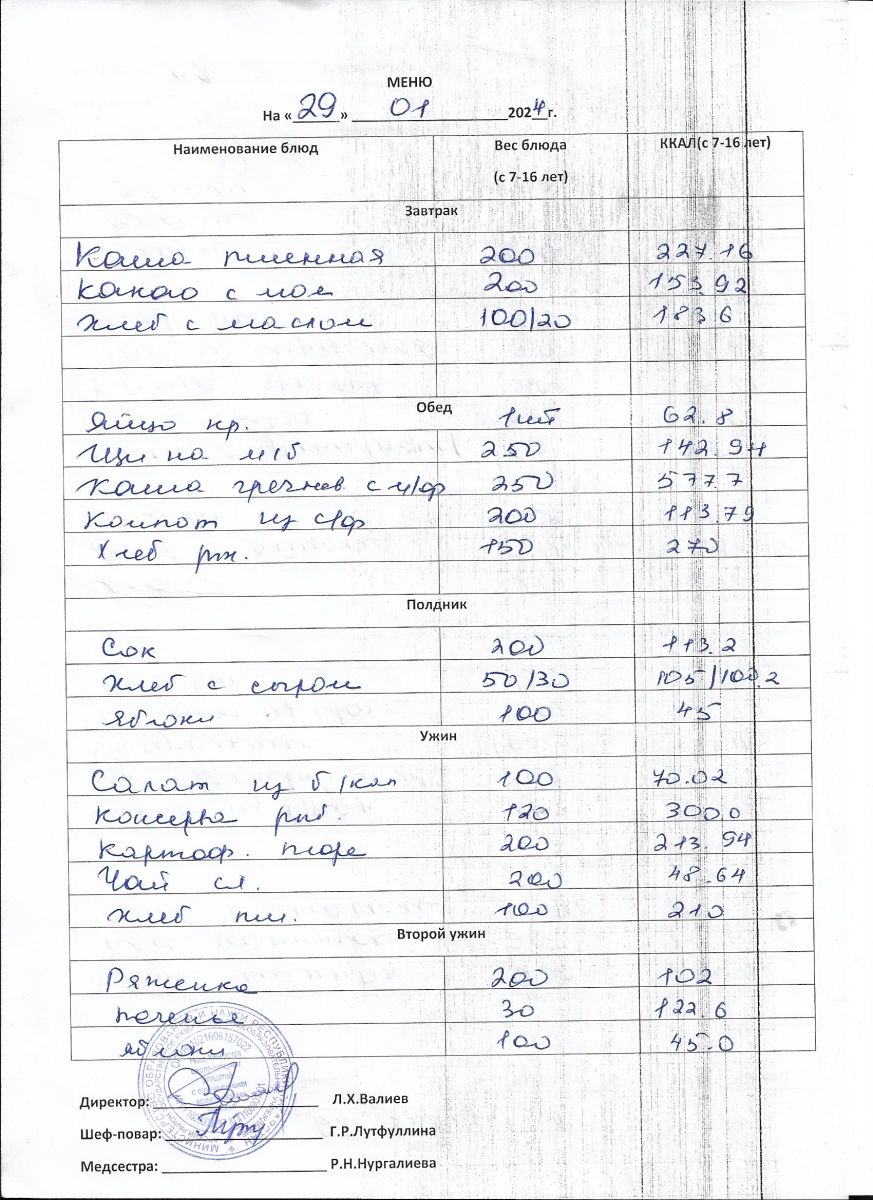 МЕНЮ
На «29» 01 2024 г.
Наименование блюд Вес блюда (с 7-16 лет) ККАЛ(с 7-16 лет)
Завтрак
Каша пшенная 200 227.16
Какао с мол 200 153.92
Хлеб с маслом 100/20 183.6
Обед
Яйцо кр. 1шт 62.8
Щи на м/б 250 142.94
Каша гречнев с м/ф 250 577.7
Компот из с/ф 200 113.79
Хлеб рж. 150 270
Полдник
Сок 200 113.2
Хлеб с сыром 50/30 105/100.2
яблоки 100 45
Ужин
Салат из б/кап 100 70.02
Консерва рыб. 120 300.0
Картоф. пюре 200 213.94
Чай сл. 200 48.64
Хлеб пш. 100 210
Второй ужин
Ряженка 200 102
печенье 30 122.6
яблоки 100 45.0
Директор: Л.Х.Валиев
Шеф-повар: Г.Р.Лутфуллина
Медсестра: Р.Н.Нургалиева